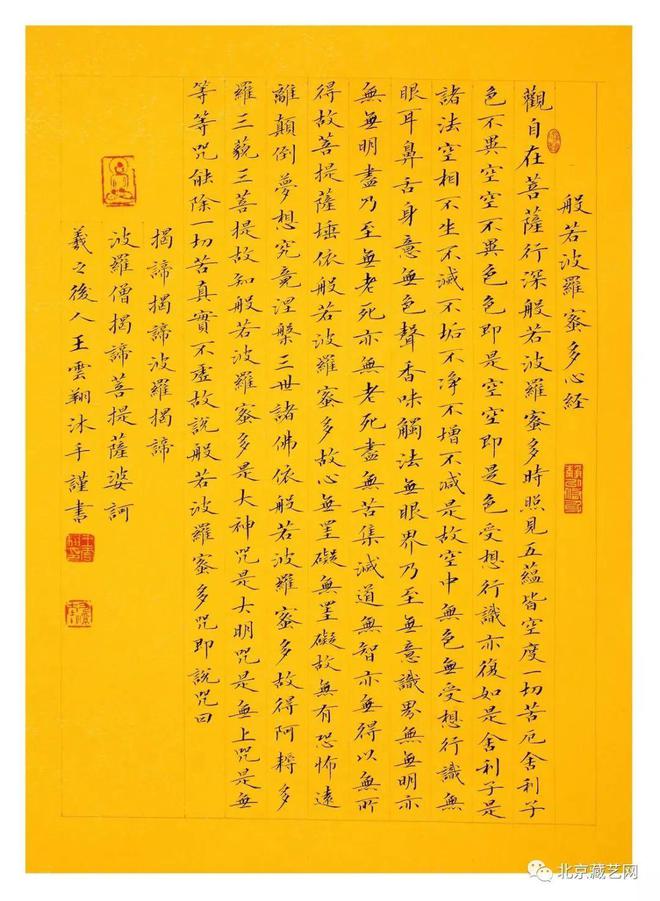 般若波羅蜜多心經
觀自在菩薩行深般若波羅蜜多時照見五蘊皆空度一切苦厄舍利子
色不異空空不異色色即是空空即是色受想行識亦復如是舍利子是
諸法空相不生不滅不垢不净不增不减是故空中無色無受想行識無
眼耳鼻舌身意無色聲香味觸法無眼界乃至無意識界無無明亦
無無明盡乃至無老死亦無老死盡無苦集滅道無智亦無得以無所
得故菩提薩埵依般若波羅蜜多故心無罣礙無罣礙故無有恐怖遠
離顛倒夢想究竟涅槃三世諸佛依般若波羅蜜多故得阿耨多
羅三藐三菩提故知般若波羅蜜多是大神咒是大明咒是無上咒是無
等等咒能除一切苦真實不虛故說般若波羅蜜多咒即說咒曰
揭諦揭諦波羅揭諦
波羅僧揭諦菩提薩婆訶
羲之後人王雲翔沐手謹書
北京藏艺网